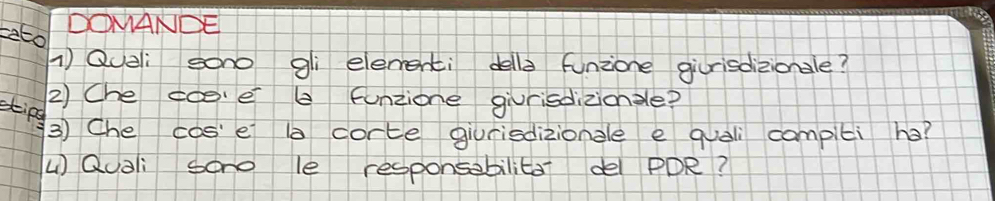 DOMANDE
cato
1) Quali sono gli elementi della funzione giurisdizionale?
2) Che cos'è la funzione giurisdizionale?
3) Che cos'è la corte giurisdizionale e quali compiti ha?
4) Quali sono le responsabilità del PDR?